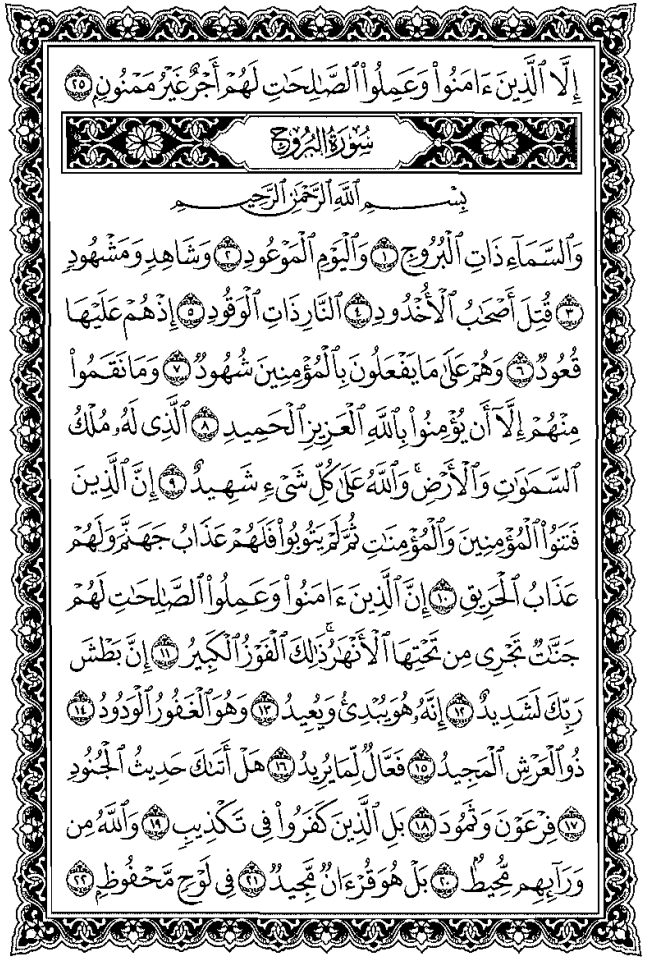 إِلَّا ٱلَّذِينَ ءَامَنُوا۟ وَعَمِلُوا۟ ٱلصَّٰلِحَٰتِ لَهُمْ أَجْرٌ غَيْرُ مَمْنُونٍۭ ٢٥
سُورَةُ البُرُوجِ
بِسْمِ ٱللَّهِ ٱلرَّحْمَٰنِ ٱلرَّحِيمِ
وَٱلسَّمَآءِ ذَاتِ ٱلْبُرُوجِ ١ وَٱلْيَوْمِ ٱلْمَوْعُودِ ٢ وَشَاهِدٍ وَمَشْهُودٍ
٣ قُتِلَ أَصْحَٰبُ ٱلْأُخْدُودِ ٤ ٱلنَّارِ ذَاتِ ٱلْوَقُودِ ٥ إِذْ هُمْ عَلَيْهَا
قُعُودٌ ٦ وَهُمْ عَلَىٰ مَا يَفْعَلُونَ بِٱلْمُؤْمِنِينَ شُهُودٌ ٧ وَمَا نَقَمُوا۟
مِنْهُمْ إِلَّآ أَن يُؤْمِنُوا۟ بِٱللَّهِ ٱلْعَزِيزِ ٱلْحَمِيدِ ٨ ٱلَّذِى لَهُۥ مُلْكُ
ٱلسَّمَٰوَٰتِ وَٱلْأَرْضِ ۚ وَٱللَّهُ عَلَىٰ كُلِّ شَىْءٍ شَهِيدٌ ٩ إِنَّ ٱلَّذِينَ
فَتَنُوا۟ ٱلْمُؤْمِنِينَ وَٱلْمُؤْمِنَٰتِ ثُمَّ لَمْ يَتُوبُوا۟ فَلَهُمْ عَذَابُ جَهَنَّمَ وَلَهُمْ
عَذَابُ ٱلْحَرِيقِ ١٠ إِنَّ ٱلَّذِينَ ءَامَنُوا۟ وَعَمِلُوا۟ ٱلصَّٰلِحَٰتِ لَهُمْ
جَنَّٰتٌ تَجْرِى مِن تَحْتِهَا ٱلْأَنْهَٰرُ ۚ ذَٰلِكَ ٱلْفَوْزُ ٱلْكَبِيرُ ١١ إِنَّ بَطْشَ
رَبِّكَ لَشَدِيدٌ ١٢ إِنَّهُۥ هُوَ يُبْدِئُ وَيُعِيدُ ١٣ وَهُوَ ٱلْغَفُورُ ٱلْوَدُودُ ١٤
ذُو ٱلْعَرْشِ ٱلْمَجِيدُ ١٥ فَعَّالٌ لِّمَا يُرِيدُ ١٦ هَلْ أَتَىٰكَ حَدِيثُ ٱلْجُنُودِ
١٧ فِرْعَوْنَ وَثَمُودَ ١٨ بَلِ ٱلَّذِينَ كَفَرُوا۟ فِى تَكْذِيبٍ ١٩ وَٱللَّهُ مِن
وَرَآئِهِم مُّحِيطٌۢ ٢٠ بَلْ هُوَ قُرْءَانٌ مَّجِيدٌ ٢١ فِى لَوْحٍ مَّحْفُوظٍۭ ٢٢